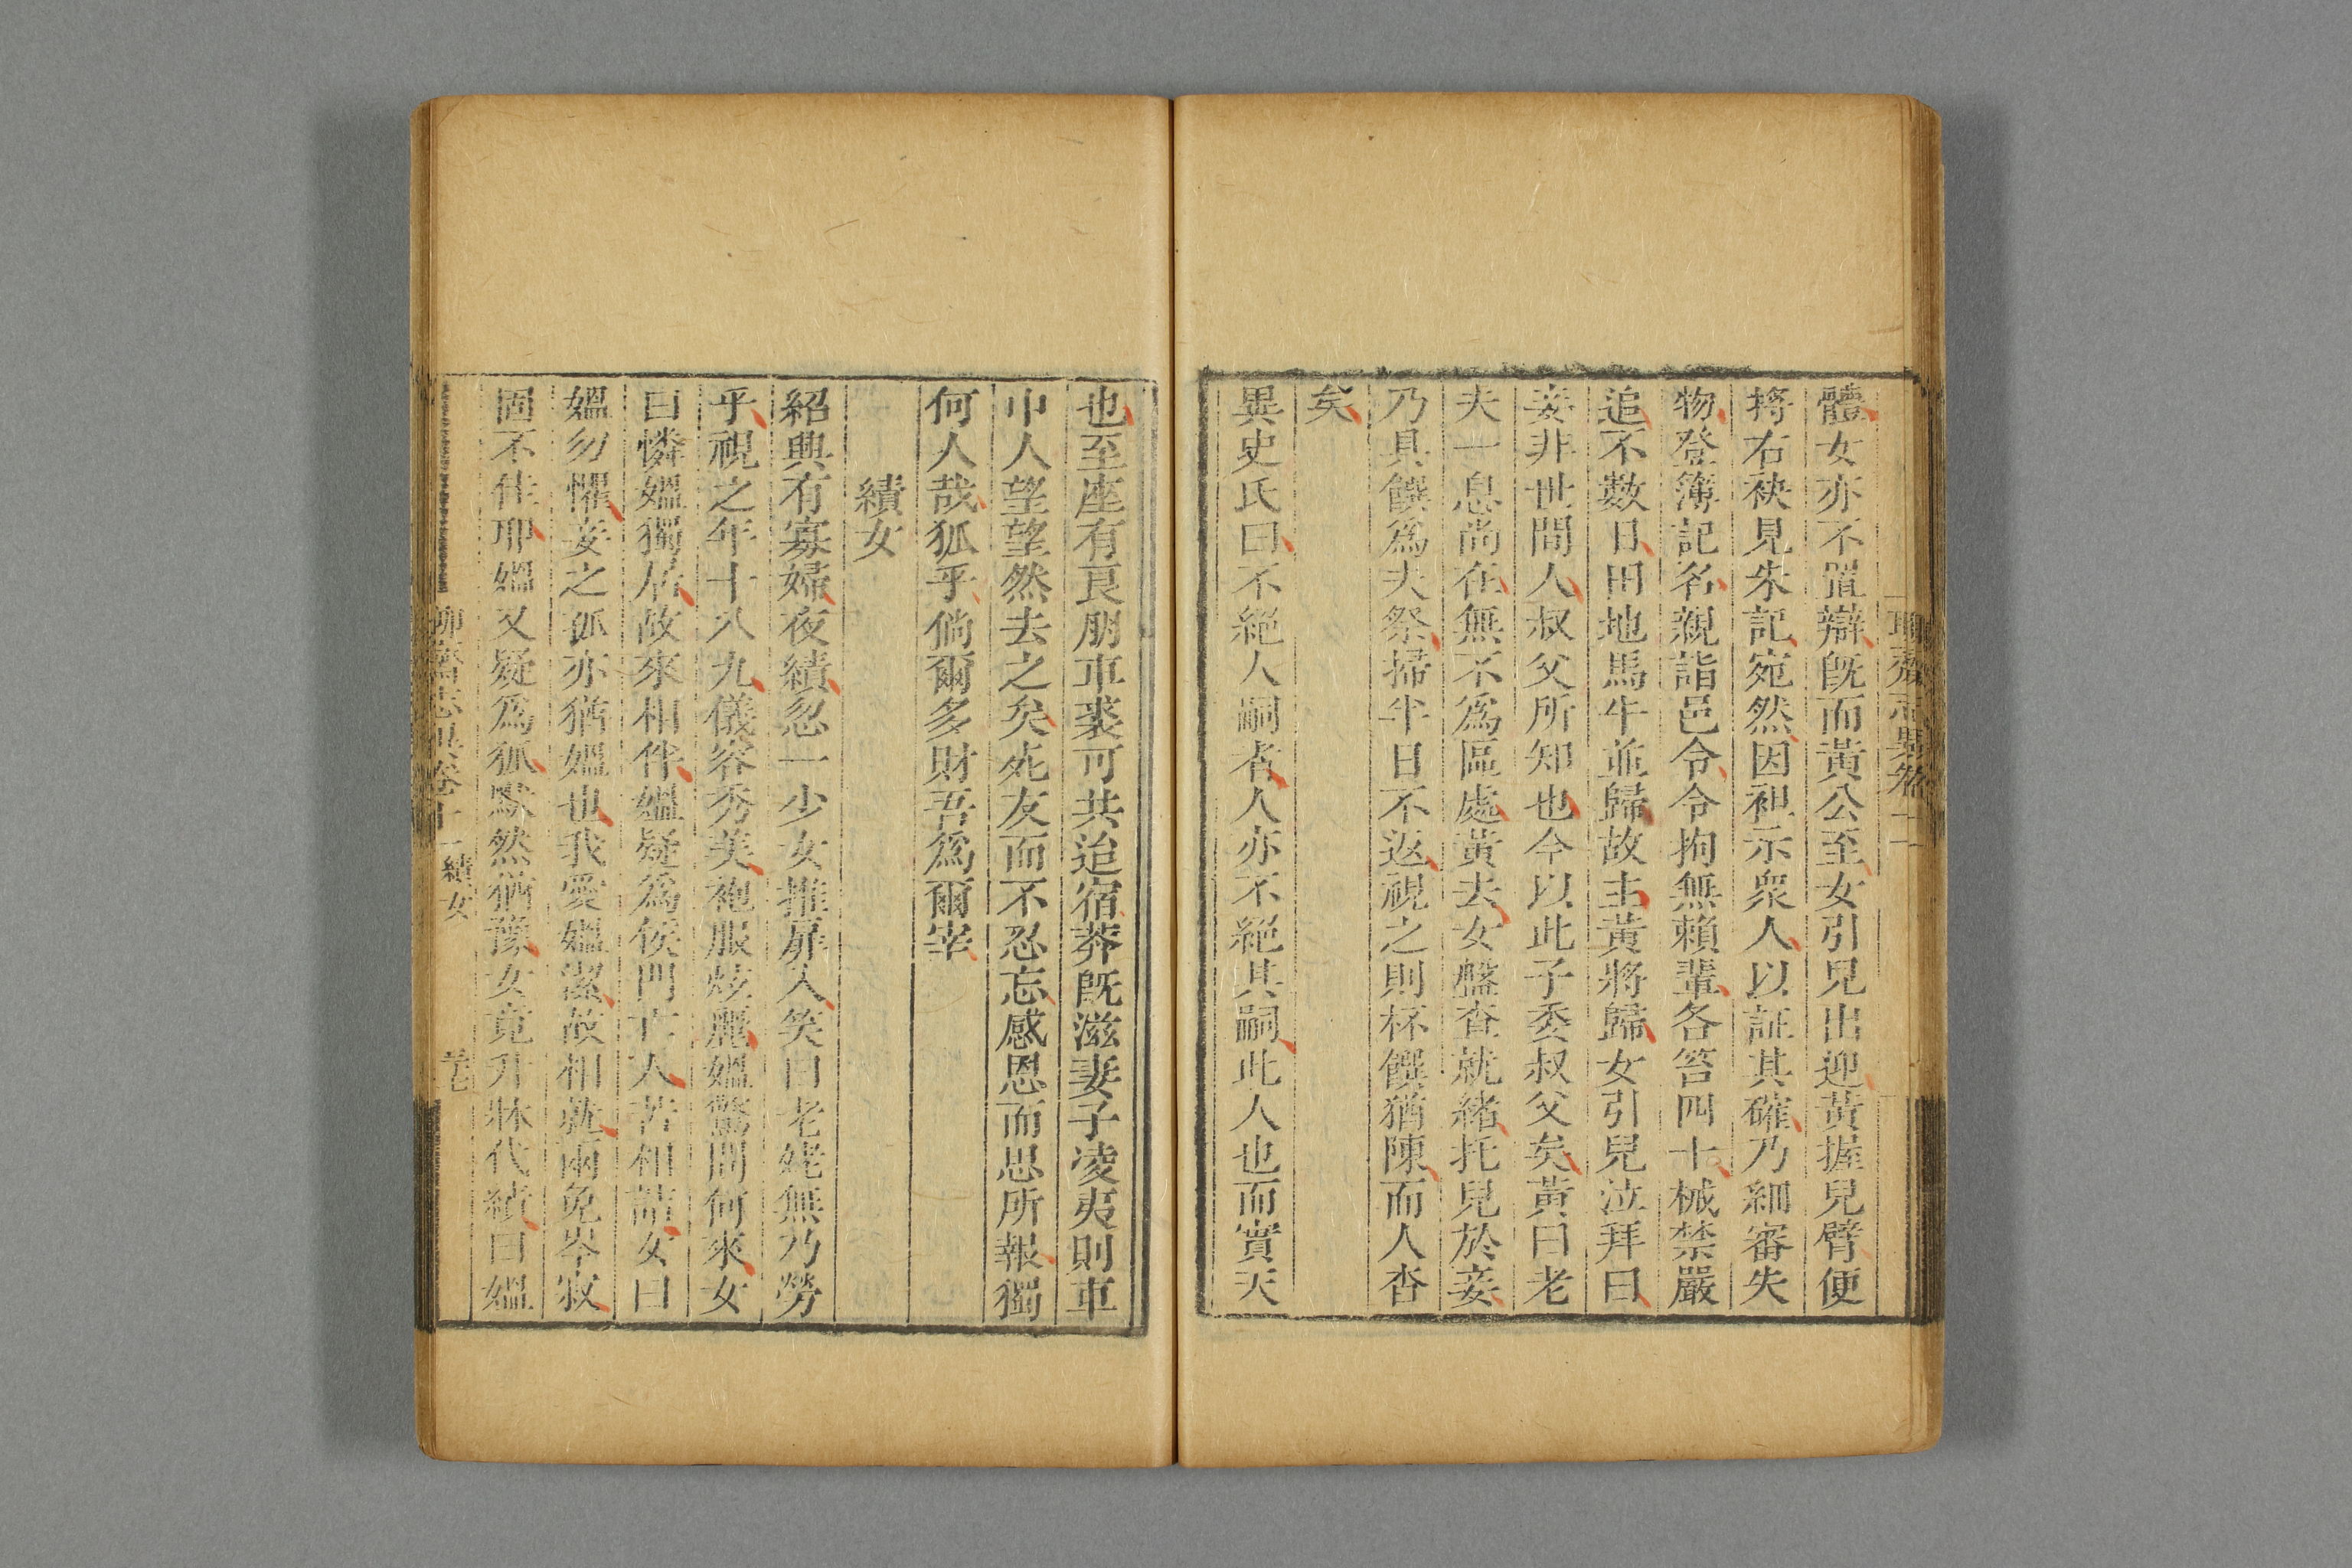 體女亦不置辯既而黃公至女引兒出迎黃握兒臂便
捋右袂見朱記宛然因袒示衆人以証其確乃細審失
物登簿記名親詣邑令令拘無賴輩各笞四十械禁嚴
追不數日田地馬牛並歸故主黃將歸女引兒泣拜曰
妾非世間人叔父所知也今以此子委叔父矣黃曰老
夫一息尚在無不爲區處黃去女盤查就緒托兒於妾
乃具饌爲夫祭掃半日不返視之則杯饌猶陳而人杳
矣
異史氏曰不絕人嗣者人亦不絕其嗣此人也而實天
也至座有良朋車裘可共迨宿莽既滋妻子凌夷則車
中人望望然去之矣死友而不忍忘感恩而思所報獨
何人哉狐乎倘爾多財吾爲爾宰
績女
紹興有寡婦夜績忽一少女推扉入笑曰老姥無乃勞
乎視之年十八九儀容秀美袍服炫麗媼驚問何來女
曰憐媼獨居故來相伴媼疑爲侯門亡人苦相詰女曰
媼勿懼妾之孤亦猶媼也我愛媼潔故相就兩免岑寂
固不佳耶媼又疑爲狐默然猶豫女竟升牀代績曰媼
聊齋志異卷十一 績女